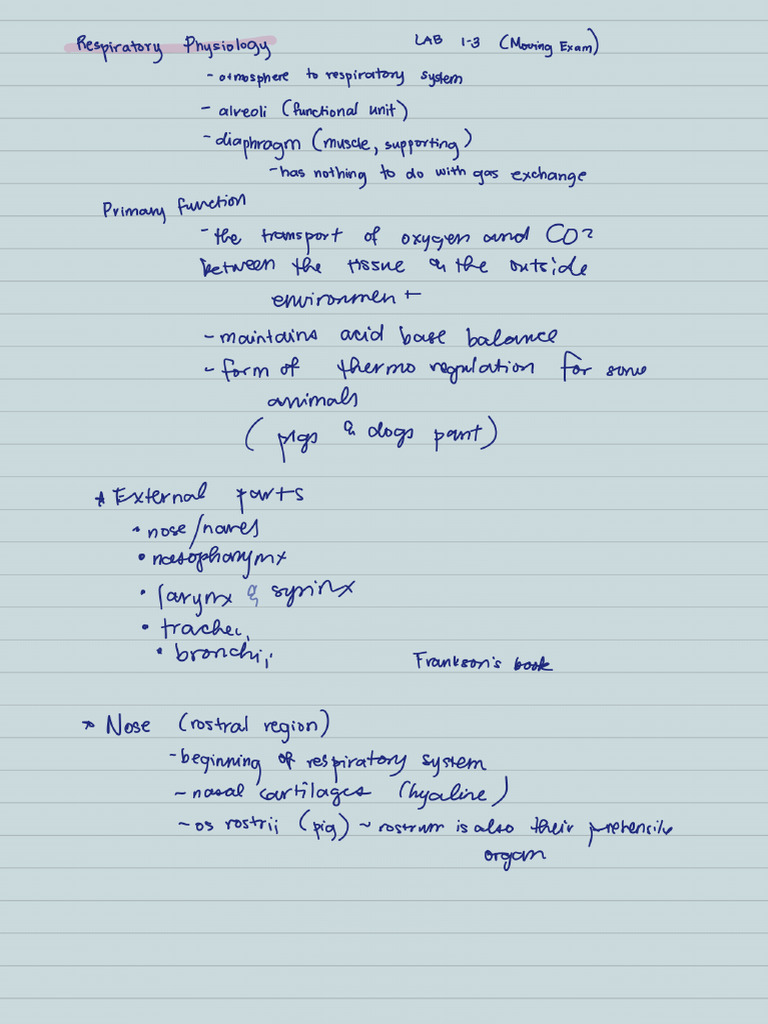 Respiratory Physiology
LAB 1-3 (Moving Exam)
- atmosphere to respiratory system
- alveoli (functional unit)
- diaphragm (muscle, supporting)
- has nothing to do with gas exchange
Primary function
- the transport of oxygen and CO2
between the tissue & the outside
environment
- maintains acid base balance
- form of thermo regulation for some
animals
(pigs & dogs pant)
* External parts
• nose/nares
• nasopharynx
• larynx & syrinx
• trachea,
• bronchi;
Frankson's book
* Nose (rostral region)
- beginning of respiratory system
- nasal cartilages (hyaline)
- os rostrij (pig) ~ rostrum is also their prehensile
organ